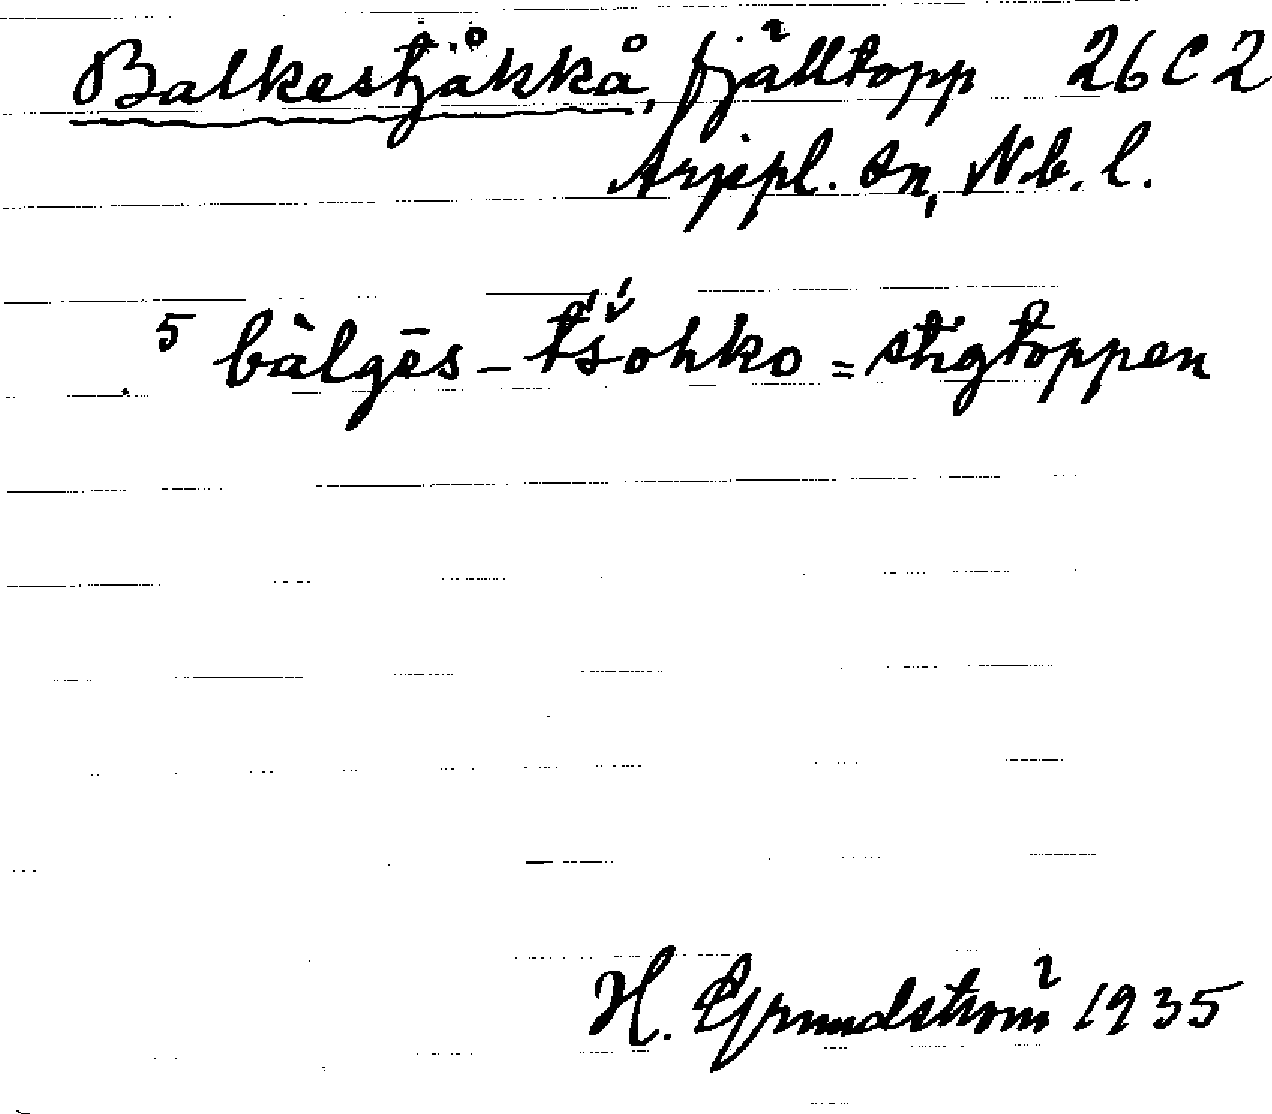 Balkestjåkkå, fjälltopp 26 C 2
Arjepl. sn, N.b.l.
5 bàlgēs - t́š́ohko = stigtoppen
H. Grundström 1935